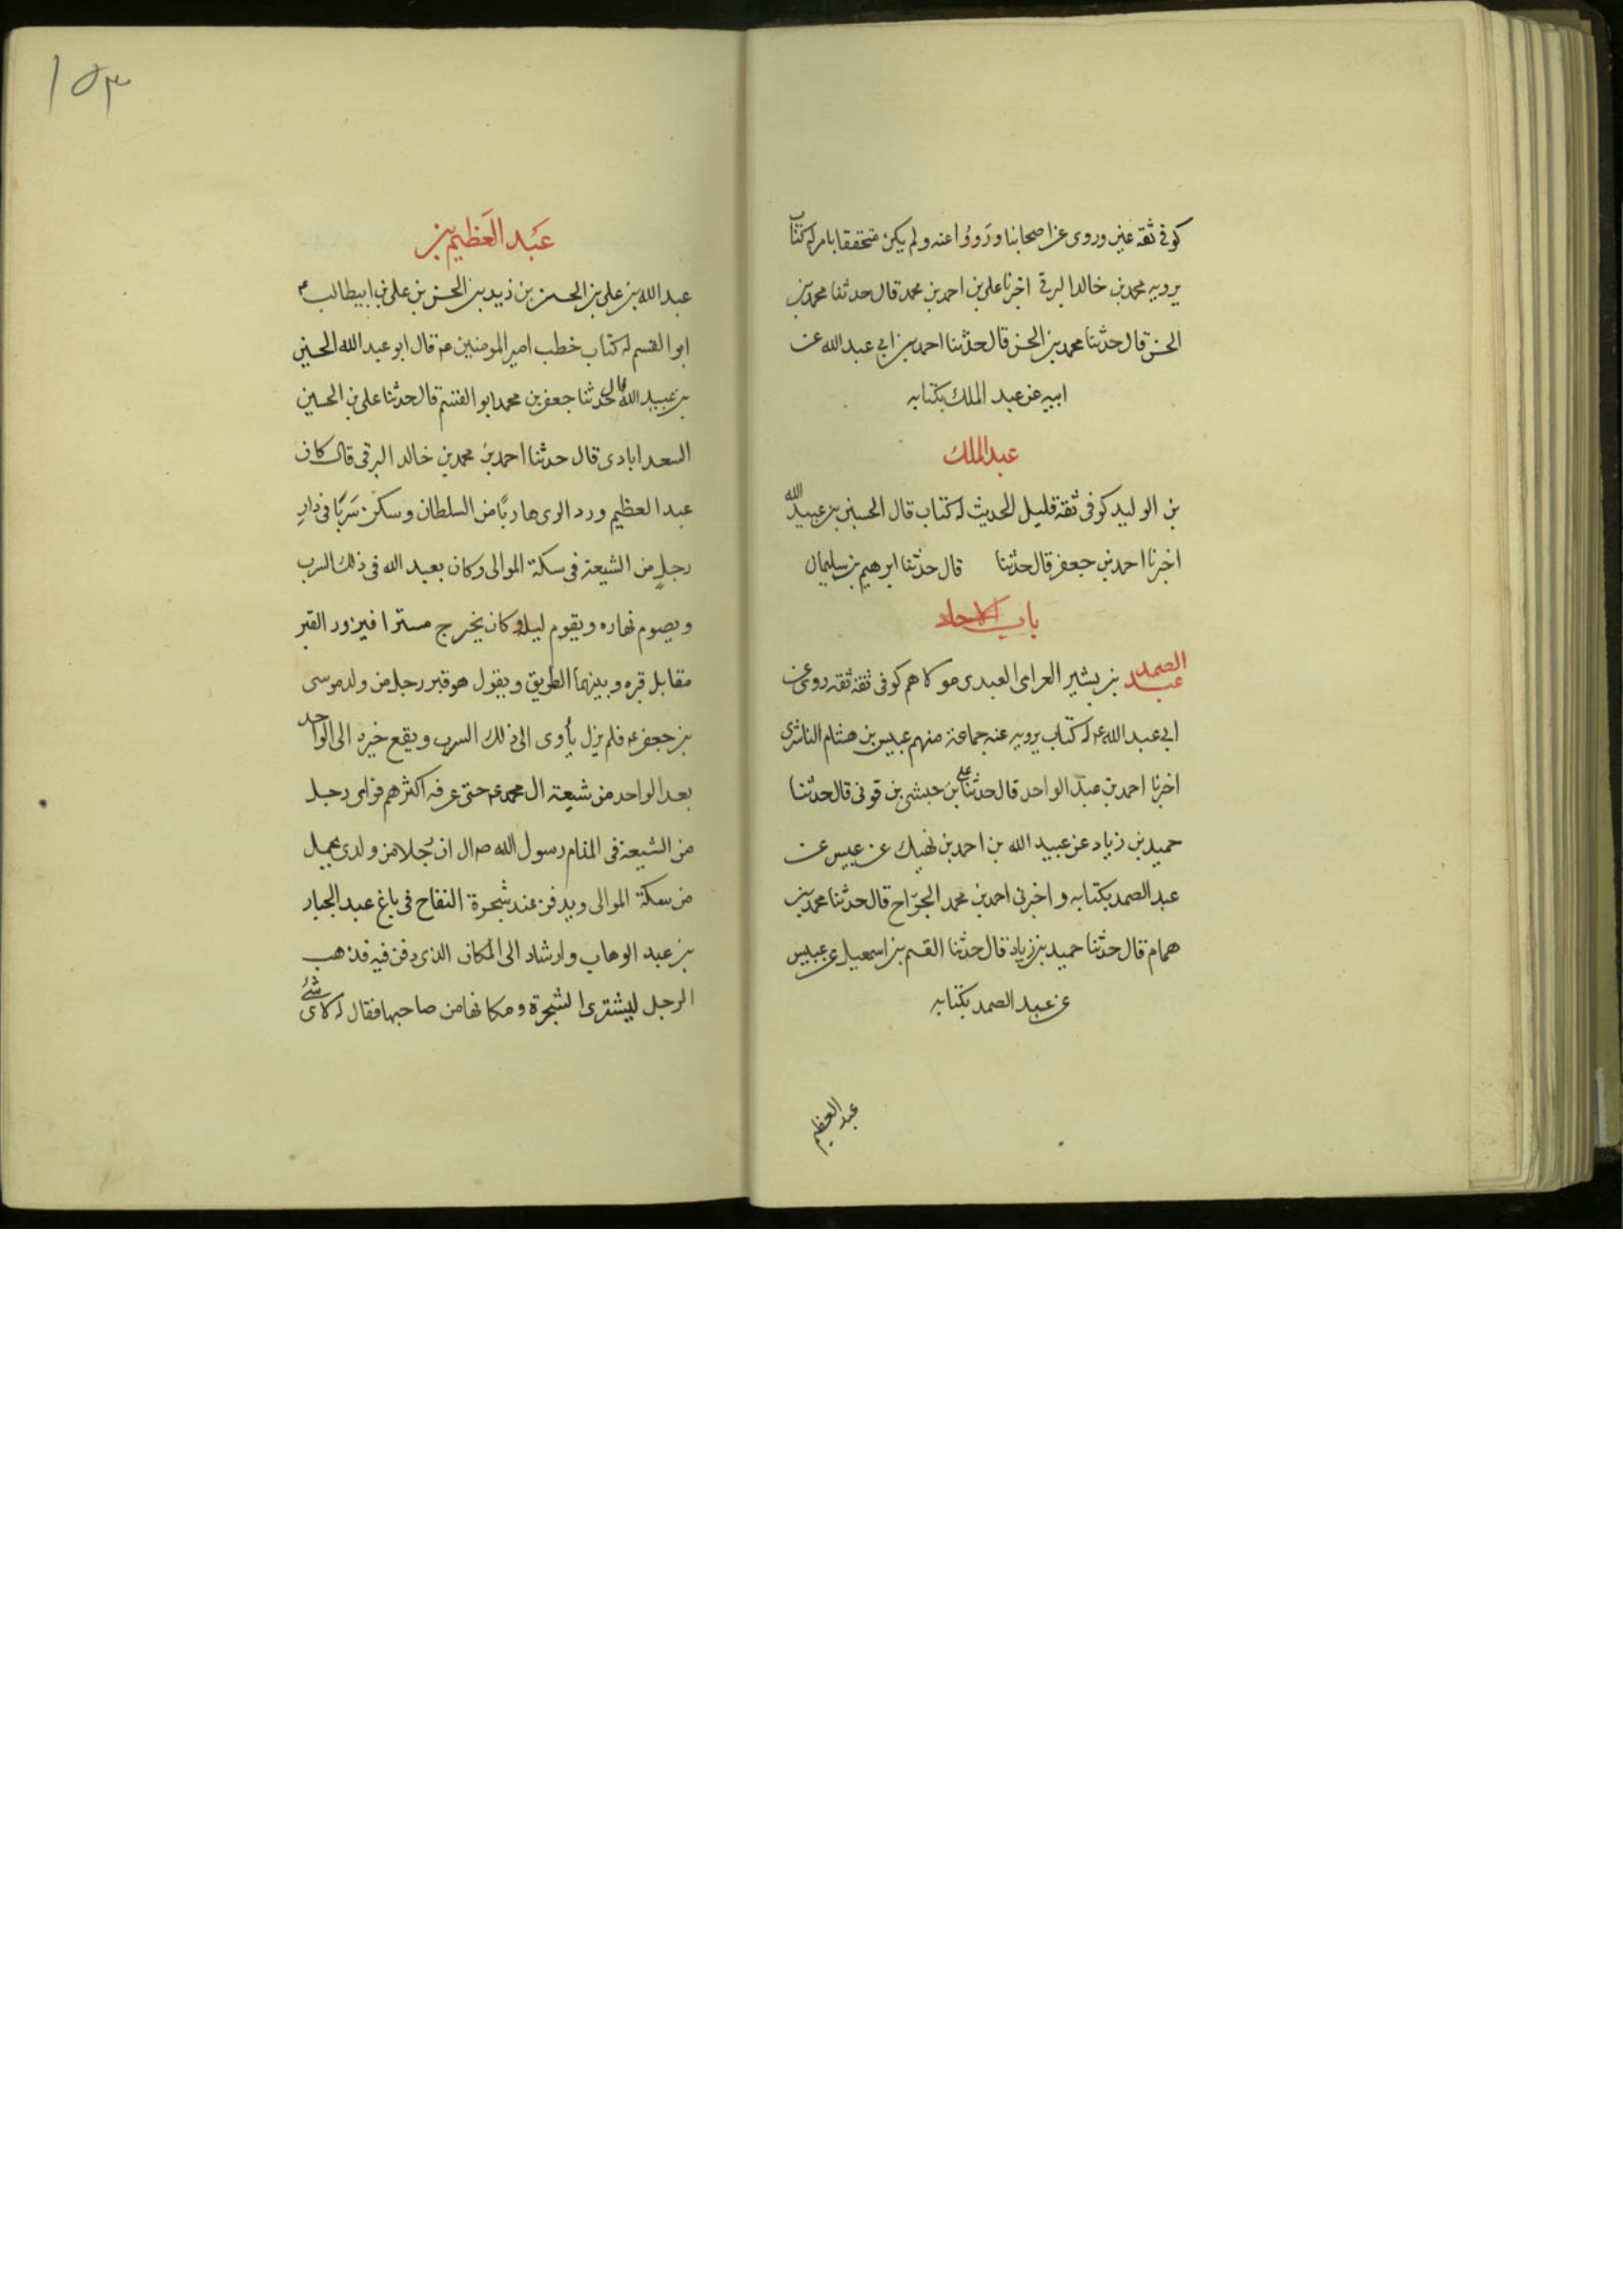 كوفي ثقة عين وروى عن اصحابنا ورَووُا عنه ولم يكن متحققا بامرنا له كتاب
يرويه محمد بن خالد البرقي اخبرنا على بن احمد بن محمد قال حدثنا محمد بن
الحسن قال حدثنا محمد بن الحسن قال حدثنا احمد بن ابي عبد الله عن
ابيه عن عبد الملك بكتابه
عبد الملك
بن الوليد كوفى ثقة قليل الحديث له كتاب قال الحسين بن عبيد الله
اخبرنا احمد بن جعفر قال حدثنا قال حدثنا ابرهيم بن سليمان
باب الاحاد
عبد الصمد بن بشير العرامى العبدى موكاهم كوفى ثقة ثقه روى عن
ابي عبد الله عم له كتاب يرويه عنه جماعة منهم عبيس بن هشام الناشرى
اخبرنا احمد بن عبد الواحد قال حدثنا على بن حبشى بن قونى قال حدثنا
حميد بن زياد عن عبيد الله بن احمد بن نهيك عن عبيس عن
عبد الصمد بكتابه و اخبرنى احمد بن محمد الجرّاح قال حدثنا محمد بن
همام قال حدثنا حميد بن زياد قال حدثنا القسم بن اسمعيل عن عبيس
عن عبد الصمد بكتابه
عبد العظيم
١٥٣
عَبد العَظيم بن
عبد الله بن على بن الحسن بن زيد بن الحسن بن على بن ابيطالب عم
ابو القسم له كتاب خطب امير المومنين عم قال ابو عبد الله الحسين
بن عبيد الله قال حدثنا جعفر بن محمد ابو القسم قال حدثنا على بن الحسين
السعدابادى قال حدثنا احمد بن محمد بن خالد البرقى قال كان
عبد العظيم ورد الرى هاربًا من السلطان وسكن سَرَبًا فى دارِ
رجلٍ من الشيعة فى سكة الموالى وكان يعبد الله فى ذلك السرب
ويصوم نهاره ويقوم ليله وكان يخرج مستترا فيزور القبر
مقابل قبره وبينهما الطريق ويقول هو قبر رجل من ولد موسى
بن جعفر عم فلم يزل يأوى الى ذلك السرب ويقع خبره الى الواحد
بعد الواحد من شيعة ال محمد عم حتى عرفه اكثرهم فراى رجل
من الشيعة فى المنام رسول الله ص قال ان رجلا من ولدى يحمل
من سكة الموالى ويدفن عند شجرة التفاح فى باغ عبد الجبار
بن عبد الوهاب وارشاد الى المكان الذى دفن فيه فذهب
الرجل ليشترى الشجرة ومكانها من صاحبها فقال له لاى شئ